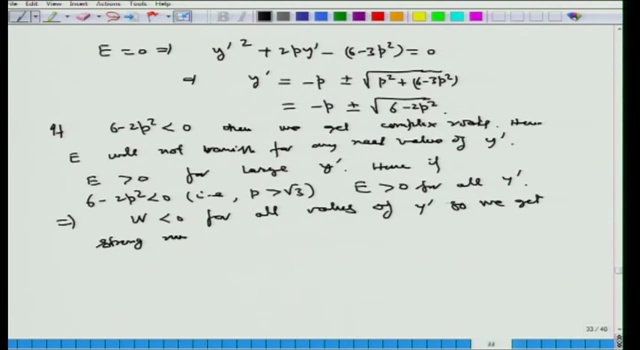 Edit View Insert Actions Tools Help
E = 0 ⇒ y'² + 2py' - (6-3p²) = 0
⇒ y' = -p ± √p² + (6-3p²)
= -p ± √6-2p².
If 6-2p² < 0 then we get complex roots. Hence
E will not vanish for any real value of y'.
E > 0 for large y'. Hence if
6-2p² < 0 (i.e, p > √3) E > 0 for all y'.
⇒ W < 0 for all values of y' so we get
strong
33 / 40
33